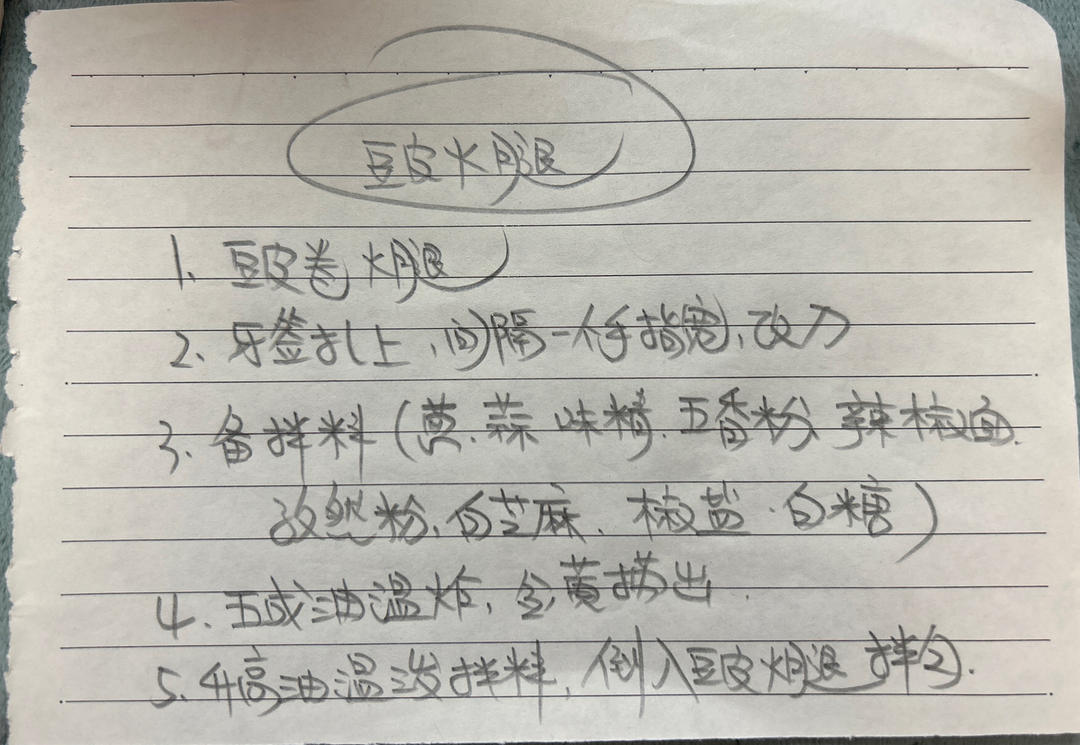 豆皮火腿
1、豆皮卷火腿
2、牙签扎上，间隔一个手指宽，改刀
3、备拌料（葱、蒜、味精、五香粉、辣椒面、
孜然粉、白芝麻、椒盐、白糖）
4、五成油温炸，金黄捞出.
5、升高油温泼拌料，倒入豆皮火腿拌匀.